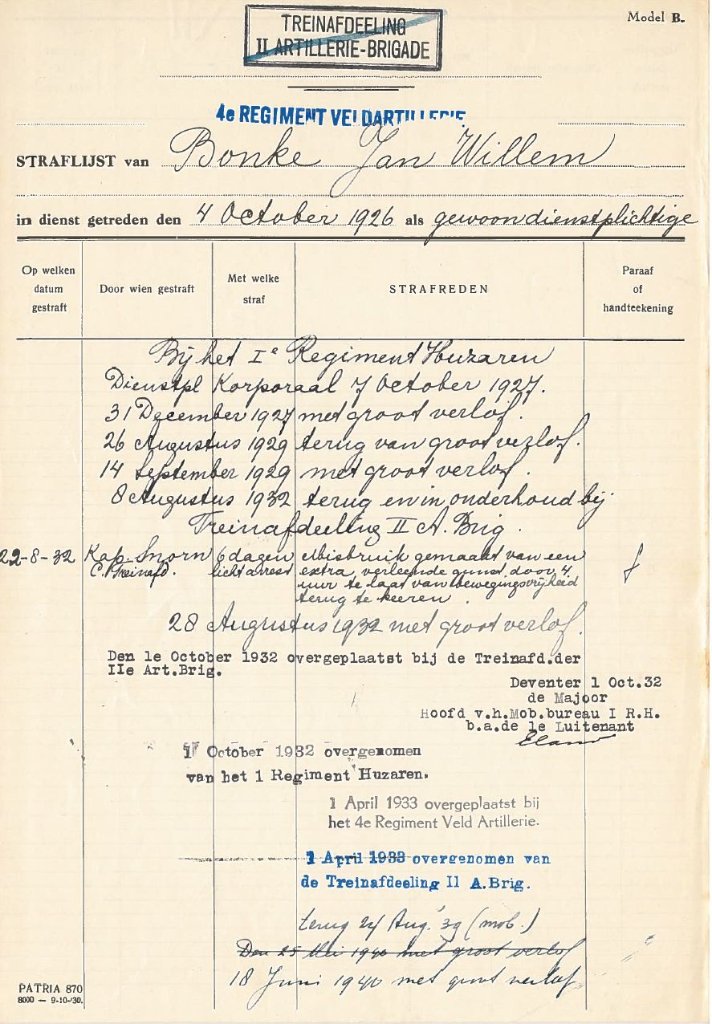 TREINAFDEELING
II ARTILLERIE-BRIGADE
Model B.
4e REGIMENT VELDARTILLERIE
STRAFLIJST van Bonke Jan Willem
in dienst getreden den 4 October 1926 als gewoon dienstplichtige
Op welken datum gestraft
Door wien gestraft
Met welke straf
STRAFREDEN
Paraaf of handteekening
Bij het Ie Regiment Huzaren
Dienstpl Korporaal 7 October 1927.
31 December 1927 met groot verlof.
26 Augustus 1929 terug van groot verlof.
14 September 1929 met groot verlof.
8 Augustus 1932 terug en in onderhoud bij
Treinafdeeling II A. Brig.
22-8-32 Kap. Snorn 6 dagen Misbruik gemaakt van een
C. Treinafd. licht arrest extra verleende gunst door 4
uur te laat van bewegingsvrijheid
terug te keeren.
28 Augustus 1932 met groot verlof.
Den 1e October 1932 overgeplaatst bij de Treinafd.der
IIe Art.Brig.
Deventer 1 Oct.32
de Majoor
Hoofd v.h.Mob.bureau I R.H.
b.a.de 1e Luitenant
1 October 1932 overgenomen
van het 1 Regiment Huzaren.
1 April 1933 overgeplaatst bij
het 4e Regiment Veld Artillerie.
1 April 1933 overgenomen van
de Treinafdeeling II A.Brig.
terug 24 Aug. '39 (mob.)
Den 25 Mei 1940 met groot verlof
18 Juni 1940 met groot verlof
PATRIA 870
8000 — 9-10-'30.